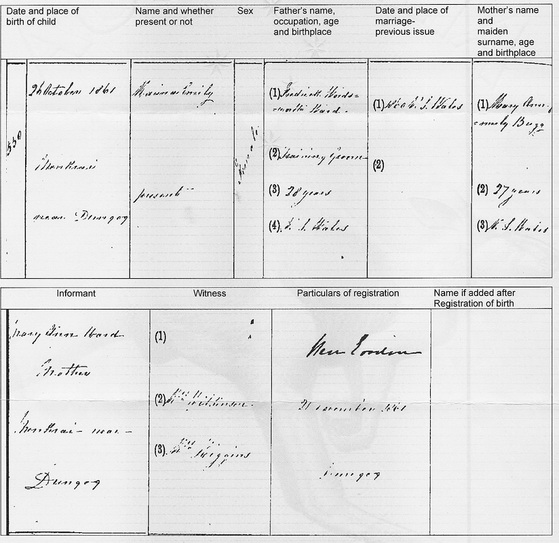 Date and place of
birth of child
Name and whether
present or not
Sex
Father's name,
occupation, age
and birthplace
Date and place of
marriage-
previous issue
Mother's name
and
maiden
surname, age
and birthplace
October 1861
Emily
present
near Dungog
(1)
Ward
(2)
(3) 28 years
(4) N. S. Wales
(1) N. S. Wales
(2)
(1) Mary Ann
(2) 27 years
(3) N. S. Wales
Informant
Witness
Particulars of registration
Name if added after
Registration of birth
Mary Ann Ward
Mother
near
Dungog
(1)
(2) Mrs Wilkinson
(3) Mrs Higgins
November 1861
Dungog